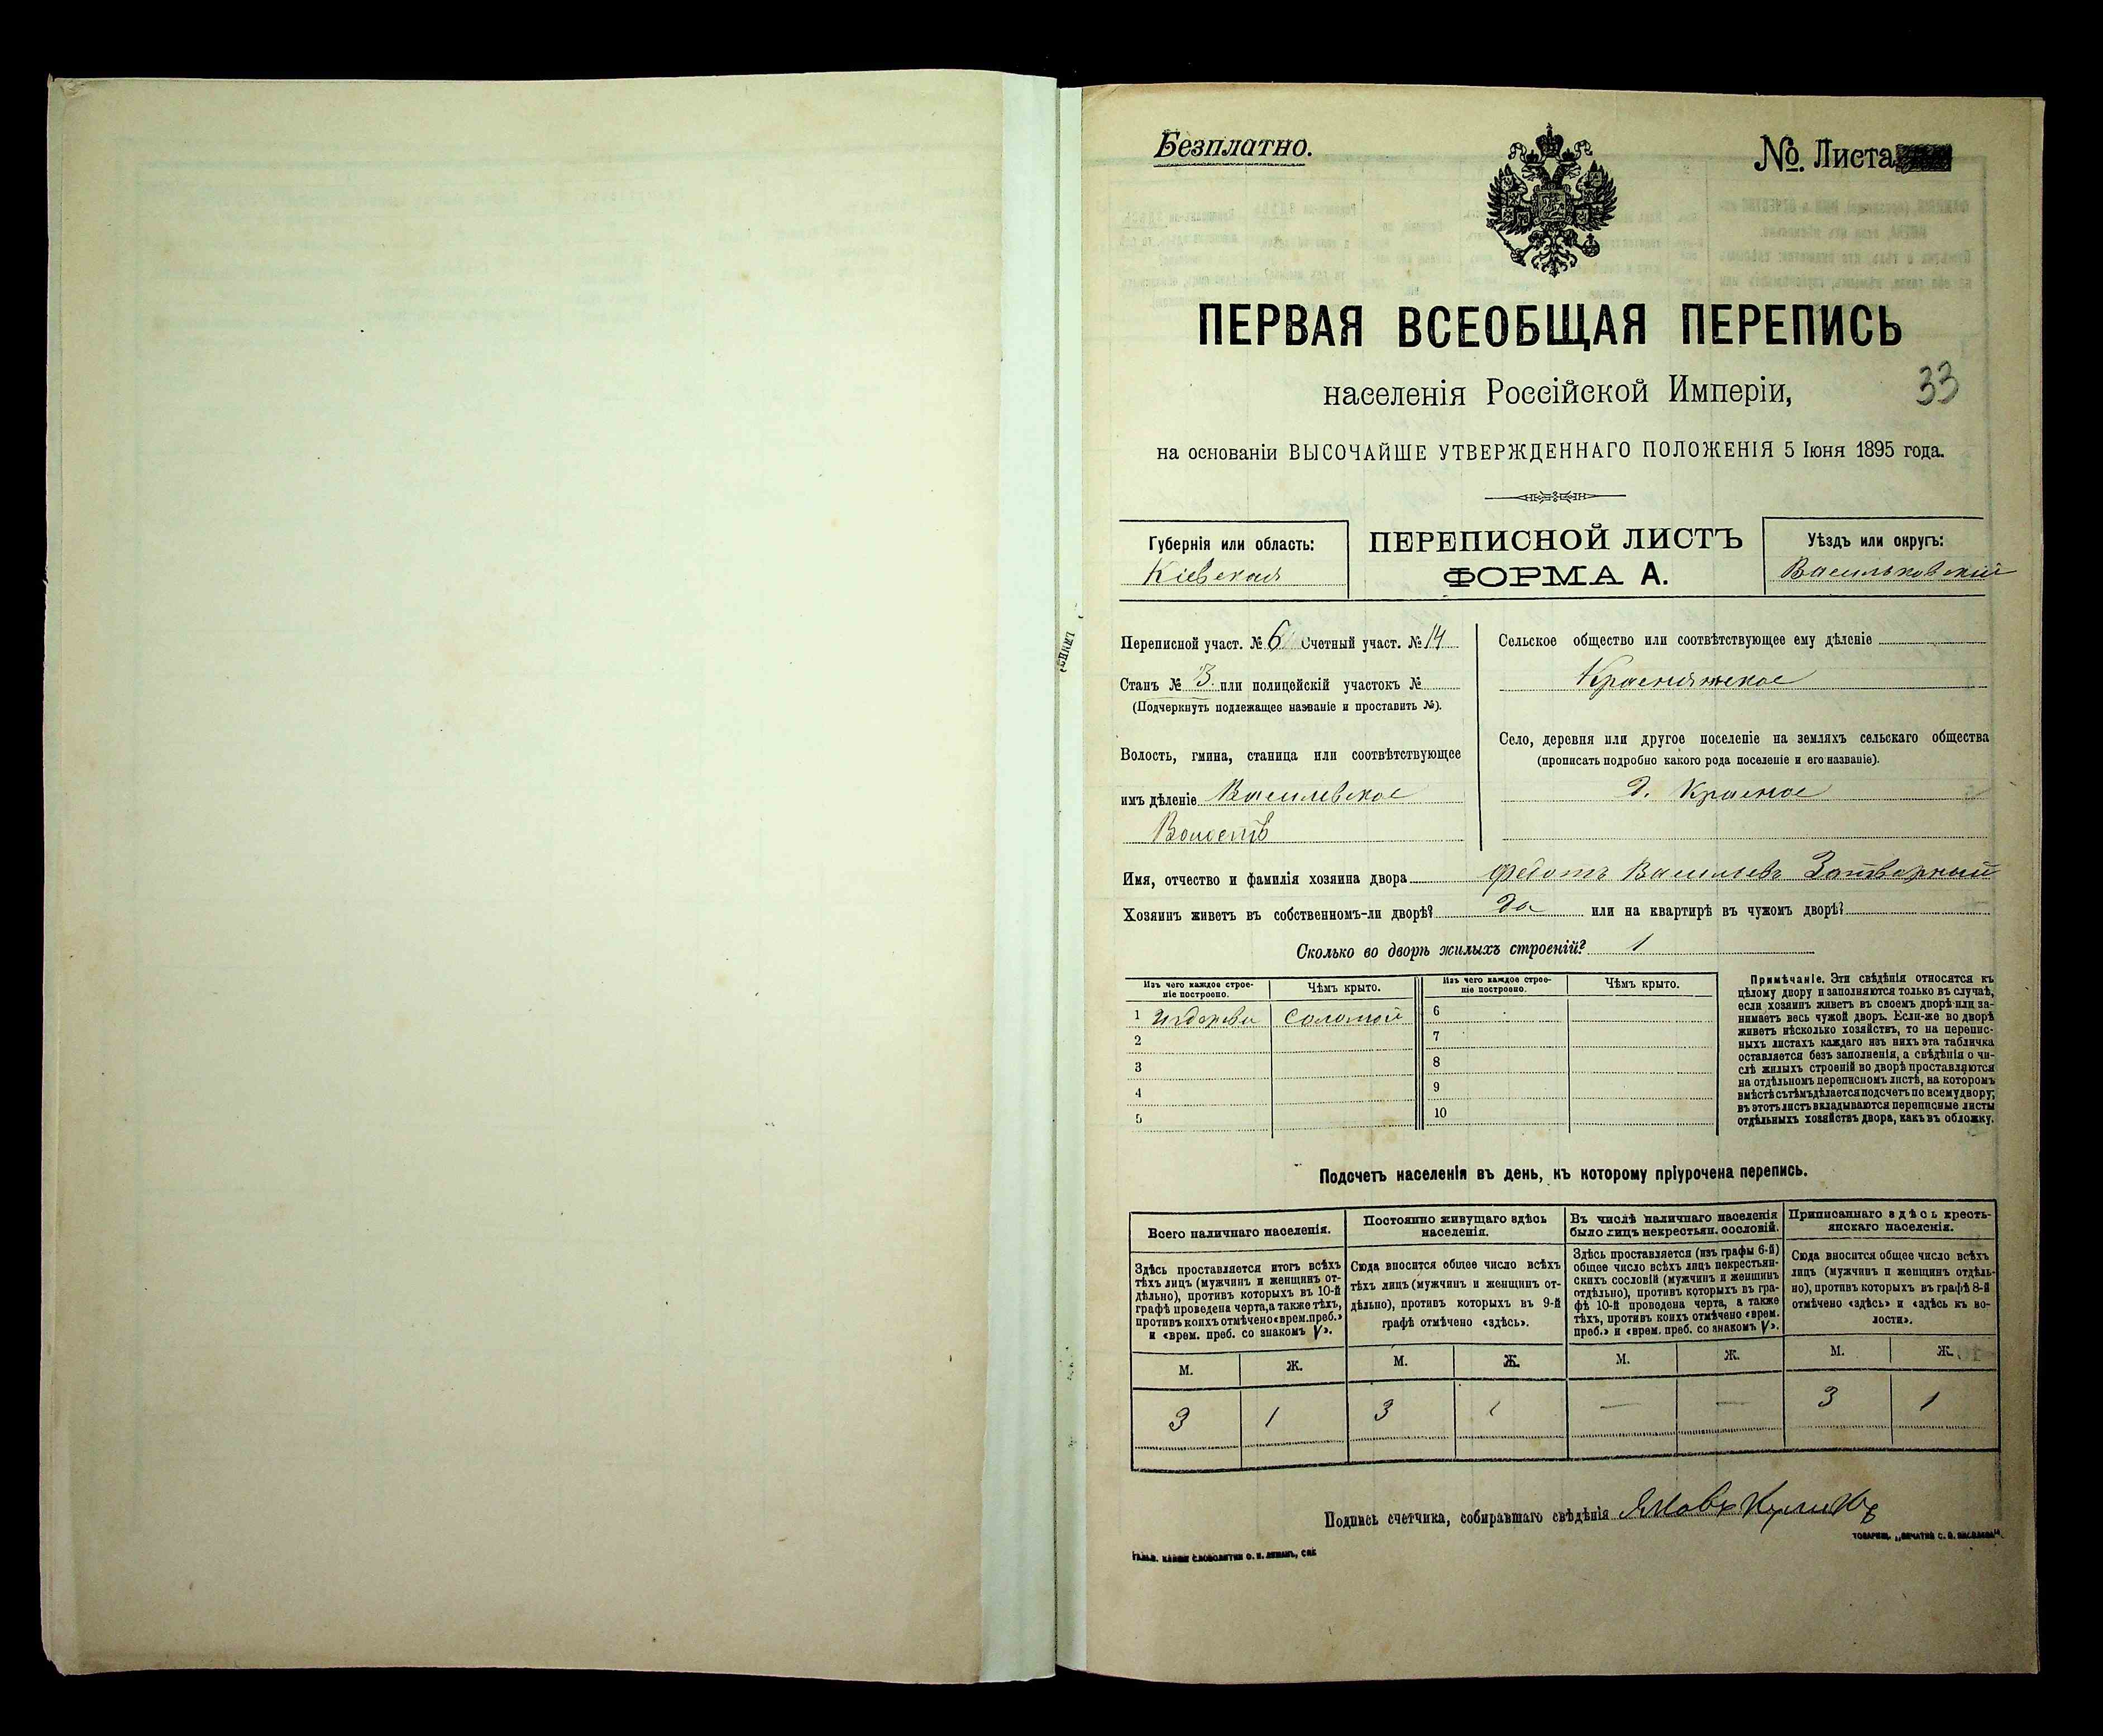 Безплатно.
№ Листа
ПЕРВАЯ ВСЕОБЩАЯ ПЕРЕПИСЬ
населенія Россійской Имперіи,
33
на основаніи ВЫСОЧАЙШЕ УТВЕРЖДЕННАГО ПОЛОЖЕНІЯ 5 Іюня 1895 года.
Губернія или область:
Кіевская
ПЕРЕПИСНОЙ ЛИСТЪ
ФОРМА А.
Уѣздъ или округъ:
Васильковскій
Переписной участ. № 6 Счетный участ. № 14
Станъ № 3. или полицейскій участокъ №
(Подчеркнуть подлежащее названіе и проставить №).
Волость, гмина, станица или соотвѣтствующее
имъ дѣленіе Василевское
Волость
Сельское общество или соотвѣтствующее ему дѣленіе
Краснянское
Село, деревня или другое поселеніе на земляхъ сельскаго общества
(прописать подробно какого рода поселеніе и его названіе).
д. Красное
Имя, отчество и фамилія хозяина двора Федотъ Васильевъ Затворный
Хозяинъ живетъ въ собственномъ-ли дворѣ? да или на квартирѣ въ чужомъ дворѣ?
Сколько во дворѣ жилыхъ строеній? 1
Изъ чего каждое строе-
ніе построено.
Чѣмъ крыто.
1 Издерева Соломой
2
3
4
5
Изъ чего каждое строе-
ніе построено.
Чѣмъ крыто.
6
7
8
9
10
Примѣчаніе. Эти свѣдѣнія относятся къ
цѣлому двору и заполняются только въ случаѣ,
если хозяинъ живетъ въ своемъ дворѣ или за-
нимаетъ весь чужой дворъ. Если-же во дворѣ
живетъ нѣсколько хозяйствъ, то на перепис-
ныхъ листахъ каждаго изъ нихъ эта табличка
оставляется безъ заполненія, а свѣдѣнія о чи-
слѣ жилыхъ строеній во дворѣ проставляются
на отдѣльномъ переписномъ листѣ, на которомъ
вмѣстѣ съ тѣмъ дѣлается подсчетъ по всему двору;
въ этотъ листъ вкладываются переписные листы
отдѣльныхъ хозяйствъ двора, какъ въ обложку.
Подсчетъ населенія въ день, къ которому пріурочена перепись.
Всего наличнаго населенія.
Здѣсь проставляется итогъ всѣхъ
тѣхъ лицъ (мужчинъ и женщинъ от-
дѣльно), противъ которыхъ въ 10-й
графѣ проведена черта, а также тѣхъ,
противъ коихъ отмѣчено «врем. преб.»
и «врем. преб. со знакомъ V».
М. Ж.
3 1
Постоянно живущаго здѣсь
населенія.
Сюда вносится общее число всѣхъ
тѣхъ лицъ (мужчинъ и женщинъ от-
дѣльно), противъ которыхъ въ 9-й
графѣ отмѣчено «здѣсь».
М. Ж.
3 1
Въ числѣ наличнаго населенія
было лицъ некрестьян. сословій.
Здѣсь проставляется (изъ графы 6-й)
общее число всѣхъ лицъ некрестьян-
скихъ сословій (мужчинъ и женщинъ
отдѣльно), противъ которыхъ въ гра-
фѣ 10-й проведена черта, а также
тѣхъ, противъ коихъ отмѣчено «врем.
преб.» и «врем. преб. со знакомъ V».
М. Ж.
— —
Приписаннаго здѣсь кресть-
янскаго населенія.
Сюда вносится общее число всѣхъ
лицъ (мужчинъ и женщинъ отдѣль-
но), противъ которыхъ въ графѣ 8-й
отмѣчено «здѣсь» и «здѣсь къ во-
лости».
М. Ж.
3 1
Подпись счетчика, собиравшаго свѣдѣнія Яковъ Куликъ